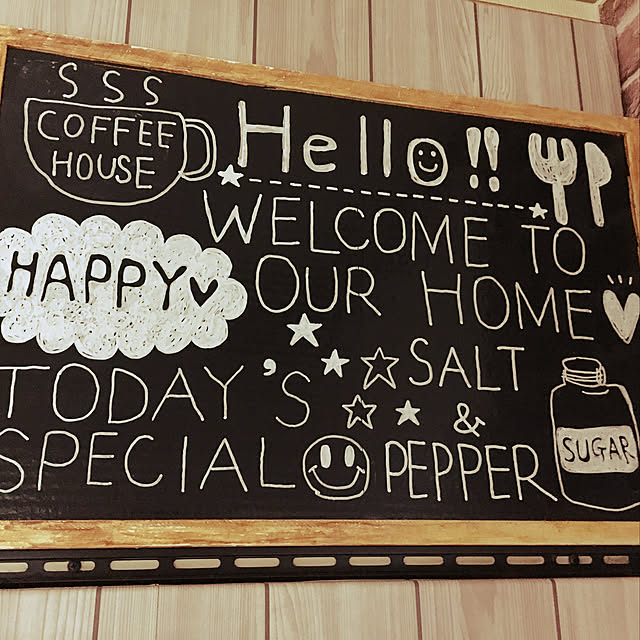 COFFEE
HOUSE
Hello!!
WELCOME TO
OUR HOME
HAPPY♥
TODAY'S
SPECIAL
SALT
&
PEPPER
SUGAR